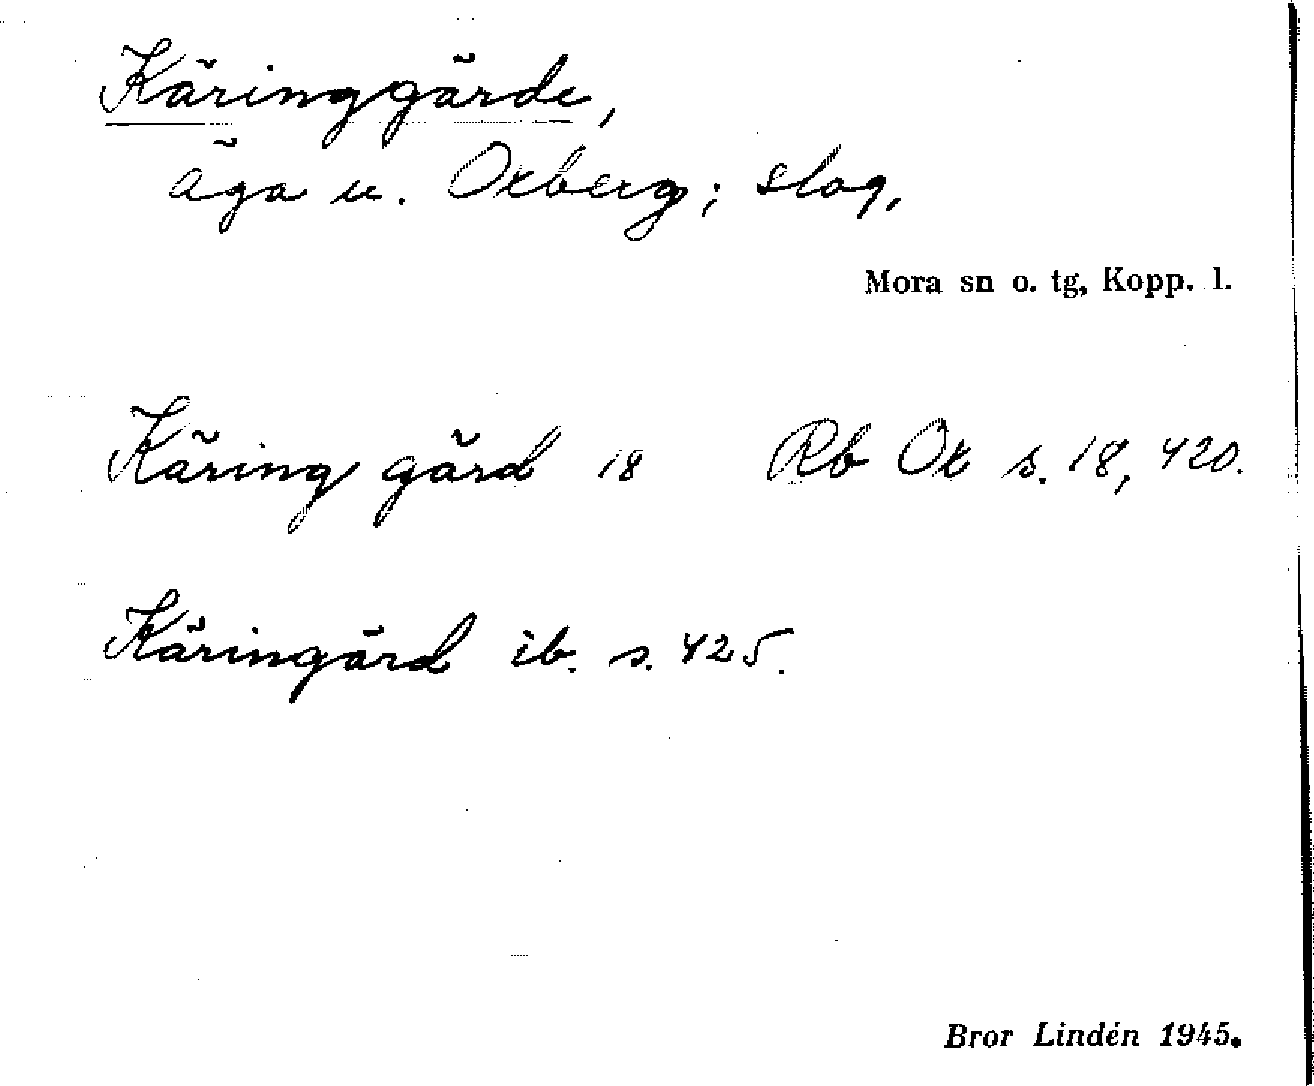 Käringgärde,
äga u. Oxberg; slog.
Mora sn o. tg, Kopp. l.
Käring gärd 18 Rb Ox s. 18, 420.
Käringärd ib. s. 425.
Bror Lindén 1945.